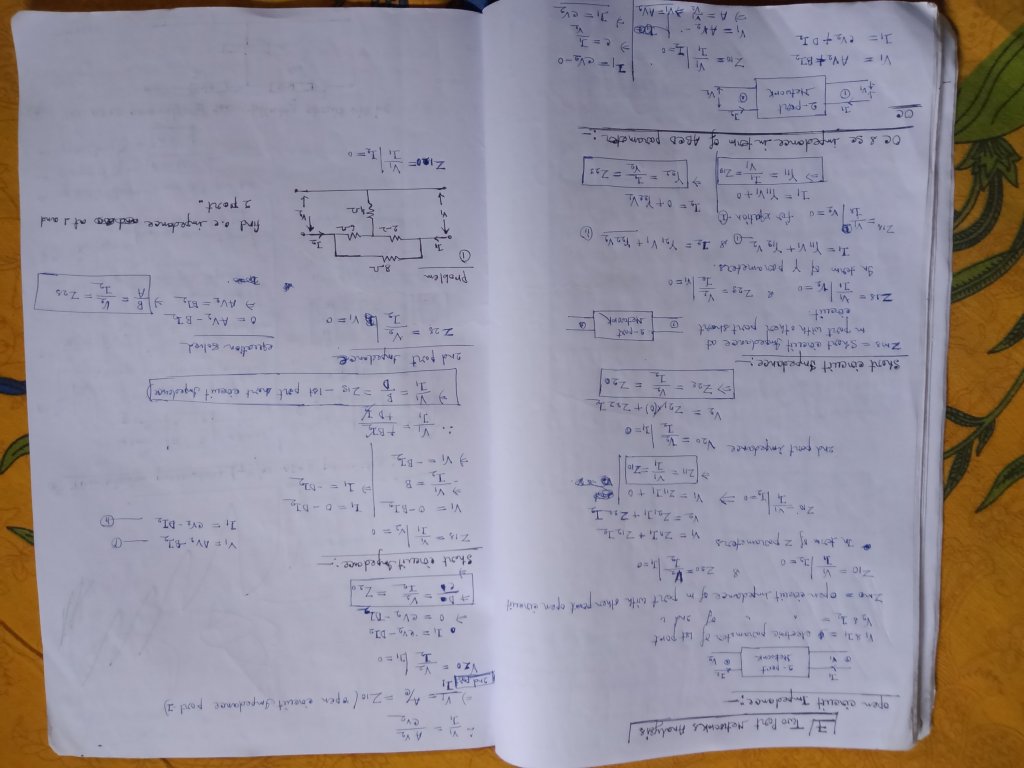 7/ Two Port Networks Analysis
open circuit Impedance:-
I1
I2
V1
2-port
Network
V2
V1 & I1 = electric parameter of 1st port
V2 & I2 = " " of 2nd "
Zmo = open circuit impedance of m port with other port open circuit
Z10 = V1/I1 | I2=0 & Z20 = V2/I2 | I1=0
In term of Z parameters
V1 = Z11I1 + Z12I2
V2 = Z21I1 + Z22I2
Z10 = V1/I1 | I2=0 ⇒ V1 = Z11I1 + 0
⇒ Z11 = V1/I1 = Z10
2nd port impedance
V20 = V2/I2 | I1=0
V2 = Z21(0) + Z22I2
⇒ Z22 = V2/I2 = Z20
Short circuit Impedance:-
Zms = Short circuit Impedance at
m port with other port short
circuit
① 2-port
Network ②
Z1s = V1/I1 | V2=0 & Z2s = V2/I2 | V1=0
In term of Y parameters.
I1 = Y11V1 + Y12V2 —① & I2 = Y21V1 + Y22V2 —②
Z1s = V1/I1 | V2=0 for equation -①
I1 = Y11V1 + 0
⇒ Y11 = I1/V1 = Z1s
I2 = 0 + Y22V2
⇒ Y22 = I2/V2 = Z2s
OC & SC impedance in term of ABCD parameter:-
OC
I1
V1
①
2-port
Network
②
I2
V2
V1 = AV2 + BI2
I1 = CV2 + DI2
Z10 = V1/I1 | I2=0
V1 = AV2
⇒ A = V1/V2 ⇒ V1 = AV2
I1 = CV2 - 0
⇒ C = I1/V2
⇒ I1 = CV2
∴ V1/I1 = AV2/CV2
⇒ V1/I1 = A/C = Z10 (open circuit Impedance port 1)
2nd port
V20 = V2/I2 | I1=0
I1 = CV2 - DI2
⇒ 0 = CV2 - DI2
⇒ D/C = V2/I2 = Z20
Short circuit Impedance:-
Z1s = V1/I1 | V2=0
V1 = AV2 - BI2 —①
I1 = CV2 - DI2 —②
V1 = 0 - BI2
⇒ V1/I2 = B
⇒ V1 = -BI2
I1 = 0 - DI2
⇒ I1 = -DI2
∴ V1/I1 = +BI2/+DI2
⇒ V1/I1 = B/D = Z1s - 1st port short circuit Impedance
2nd port Impedance
Z2s = V2/I2 | V1=0
equation solved
0 = AV2 - BI2
⇒ AV2 = BI2 ⇒ B/A = V2/I2 = Z2s
Problem
①
8Ω
2Ω
I1
V1
I2
V2
find o.c impedance at 1 and
2 port.
Z10 = V1/I1 | I2=0